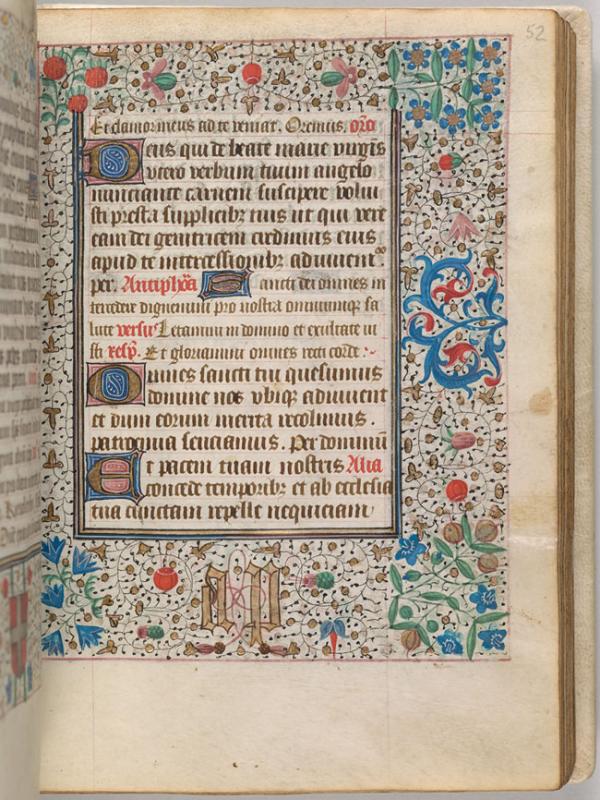 52
Et clamor meus ad te veniat. Oremus. orō
Deus qui de beate marie virgīs
vtero verbum tuum angelo
nunciante carnem suscipere volui
sti presta supplicibꝫ tuis ut qui vere
eam dei genitricem credimus eius
apud te intercessionibꝫ adiuvent
per. Antiphōa Sancti dei omnes in
tercedere dignemini pro nostra omniumqꝫ sa
lute versus Letamini in domino et exultate iu
sti resp. Et gloriamini omnes recti corde :
Omnes sancti tui quesumus
domine nos vbiqꝫ adiuvent
et dum eorum merita recolimus .
patrocinia senciamus . Per dominū
Et pacem tuam nostris Alia
concede temporibꝫ et ab ecclesia
tua cunctam repelle nequiciam